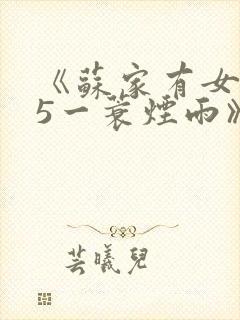 《蘇家有女
5一蓑煙雨》
芸曦兒